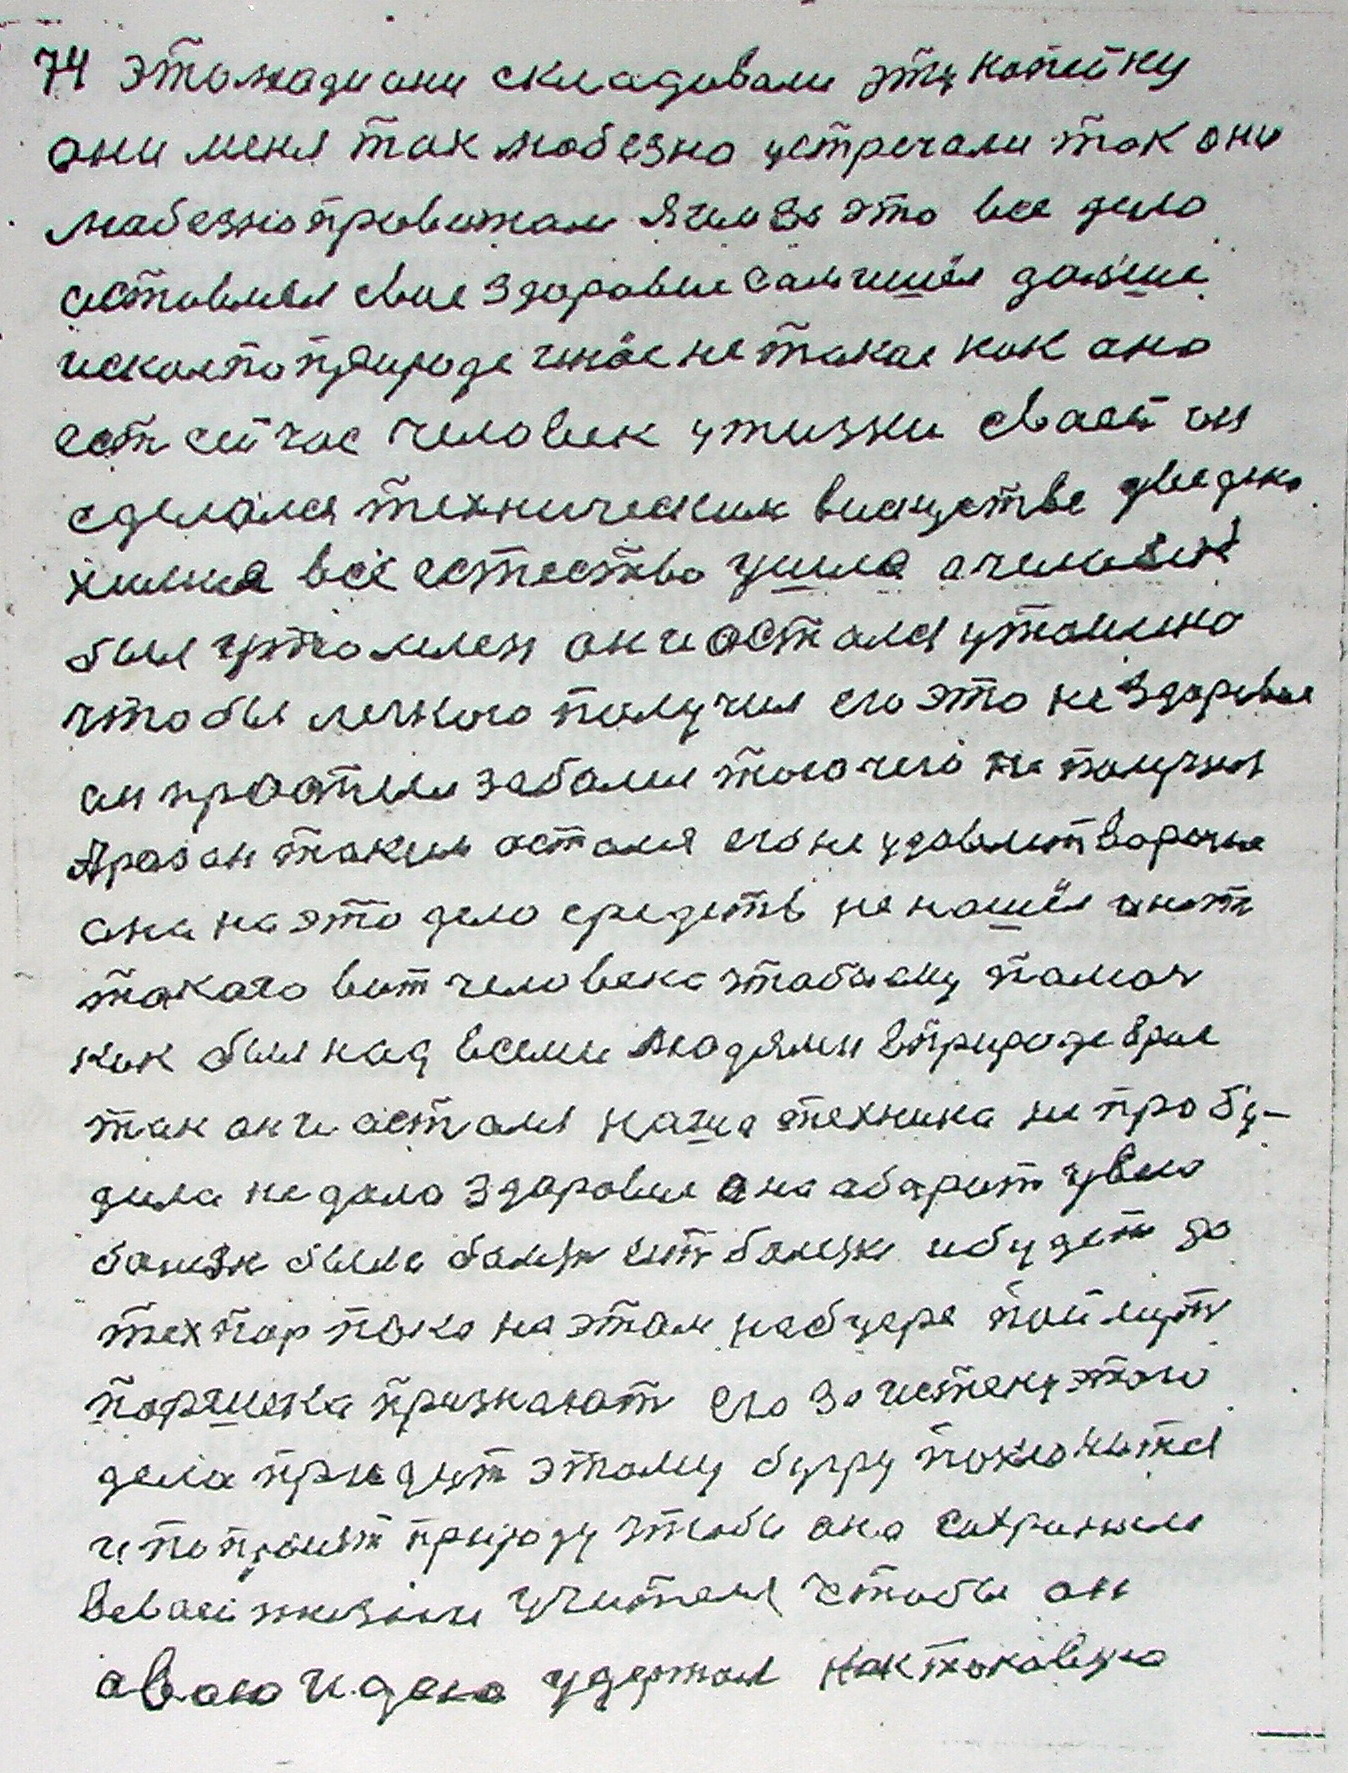 74 этолюди они складовали эту копейку
они меня так любезно устречали так они
любезно провожали Я чи за это все дело
аставлял свае здаровие сам ишёл дальше
искал по природе иное не такое как ано
ест сейчас человек у жизни сваей он
сделался техническим в искустве
химия всё естество ушла а человек
был утомлен он и остался утомлено
чтобы легкого получил его это не здоровие
он простыл заболел того чего не получил
А раз он таким остался его не удавлитворение
она на это дело средств не нашёл и нет
такого вот человека чтобы ему помоч
как был над всеми людями в природе враг
так он и астался наша техника не пробу-
дила не дала здоровие а наабарот увело
болезн была болезн ест болезн и будет до
тех пор пока на этом на бугре поймут
поршека признают его за истену этого
дела придут этому бугру поклонится
и попросят природу чтобы ана сахранила
в сваей жизни учителя чтобы он
сваю идею удержал как таковую